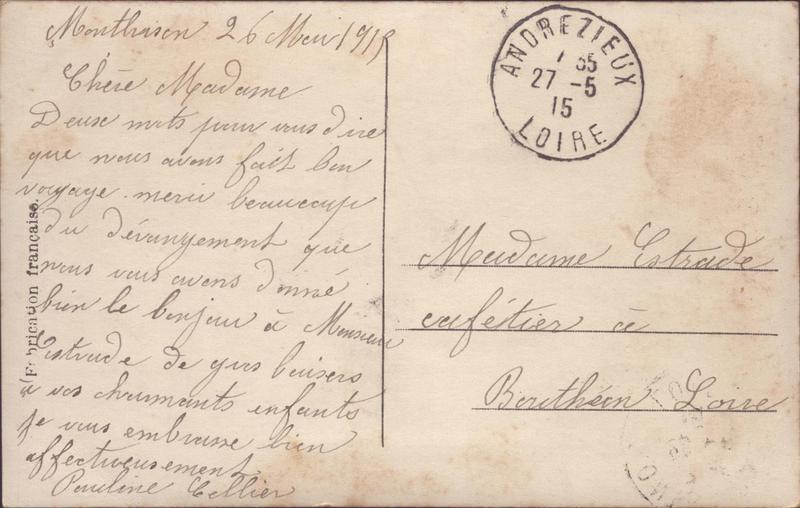 Monthuson 26 Mai 1915
Chère Madame
Deux mots pour vous dire
que nous avons fait bon
voyage. merci beaucoup
du dérangement que
nous vous avons donné
bien le bonjour à Monsieur
Estrade de gros baisers
a vos charmants enfants
je vous embrasse bien
affectueusement
Pauline Cellier
(Fabrication française.
ANDREZIEUX
27 -5
15
LOIRE
Madame Estrade
cafétier à
Bouthéon Loire